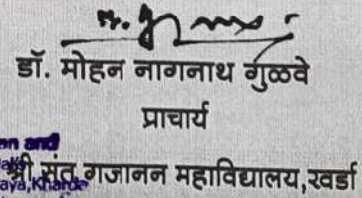 डॉ. मोहन नागनाथ गुळवे
प्राचार्य
श्री संत गजानन महाविद्यालय,खर्डा